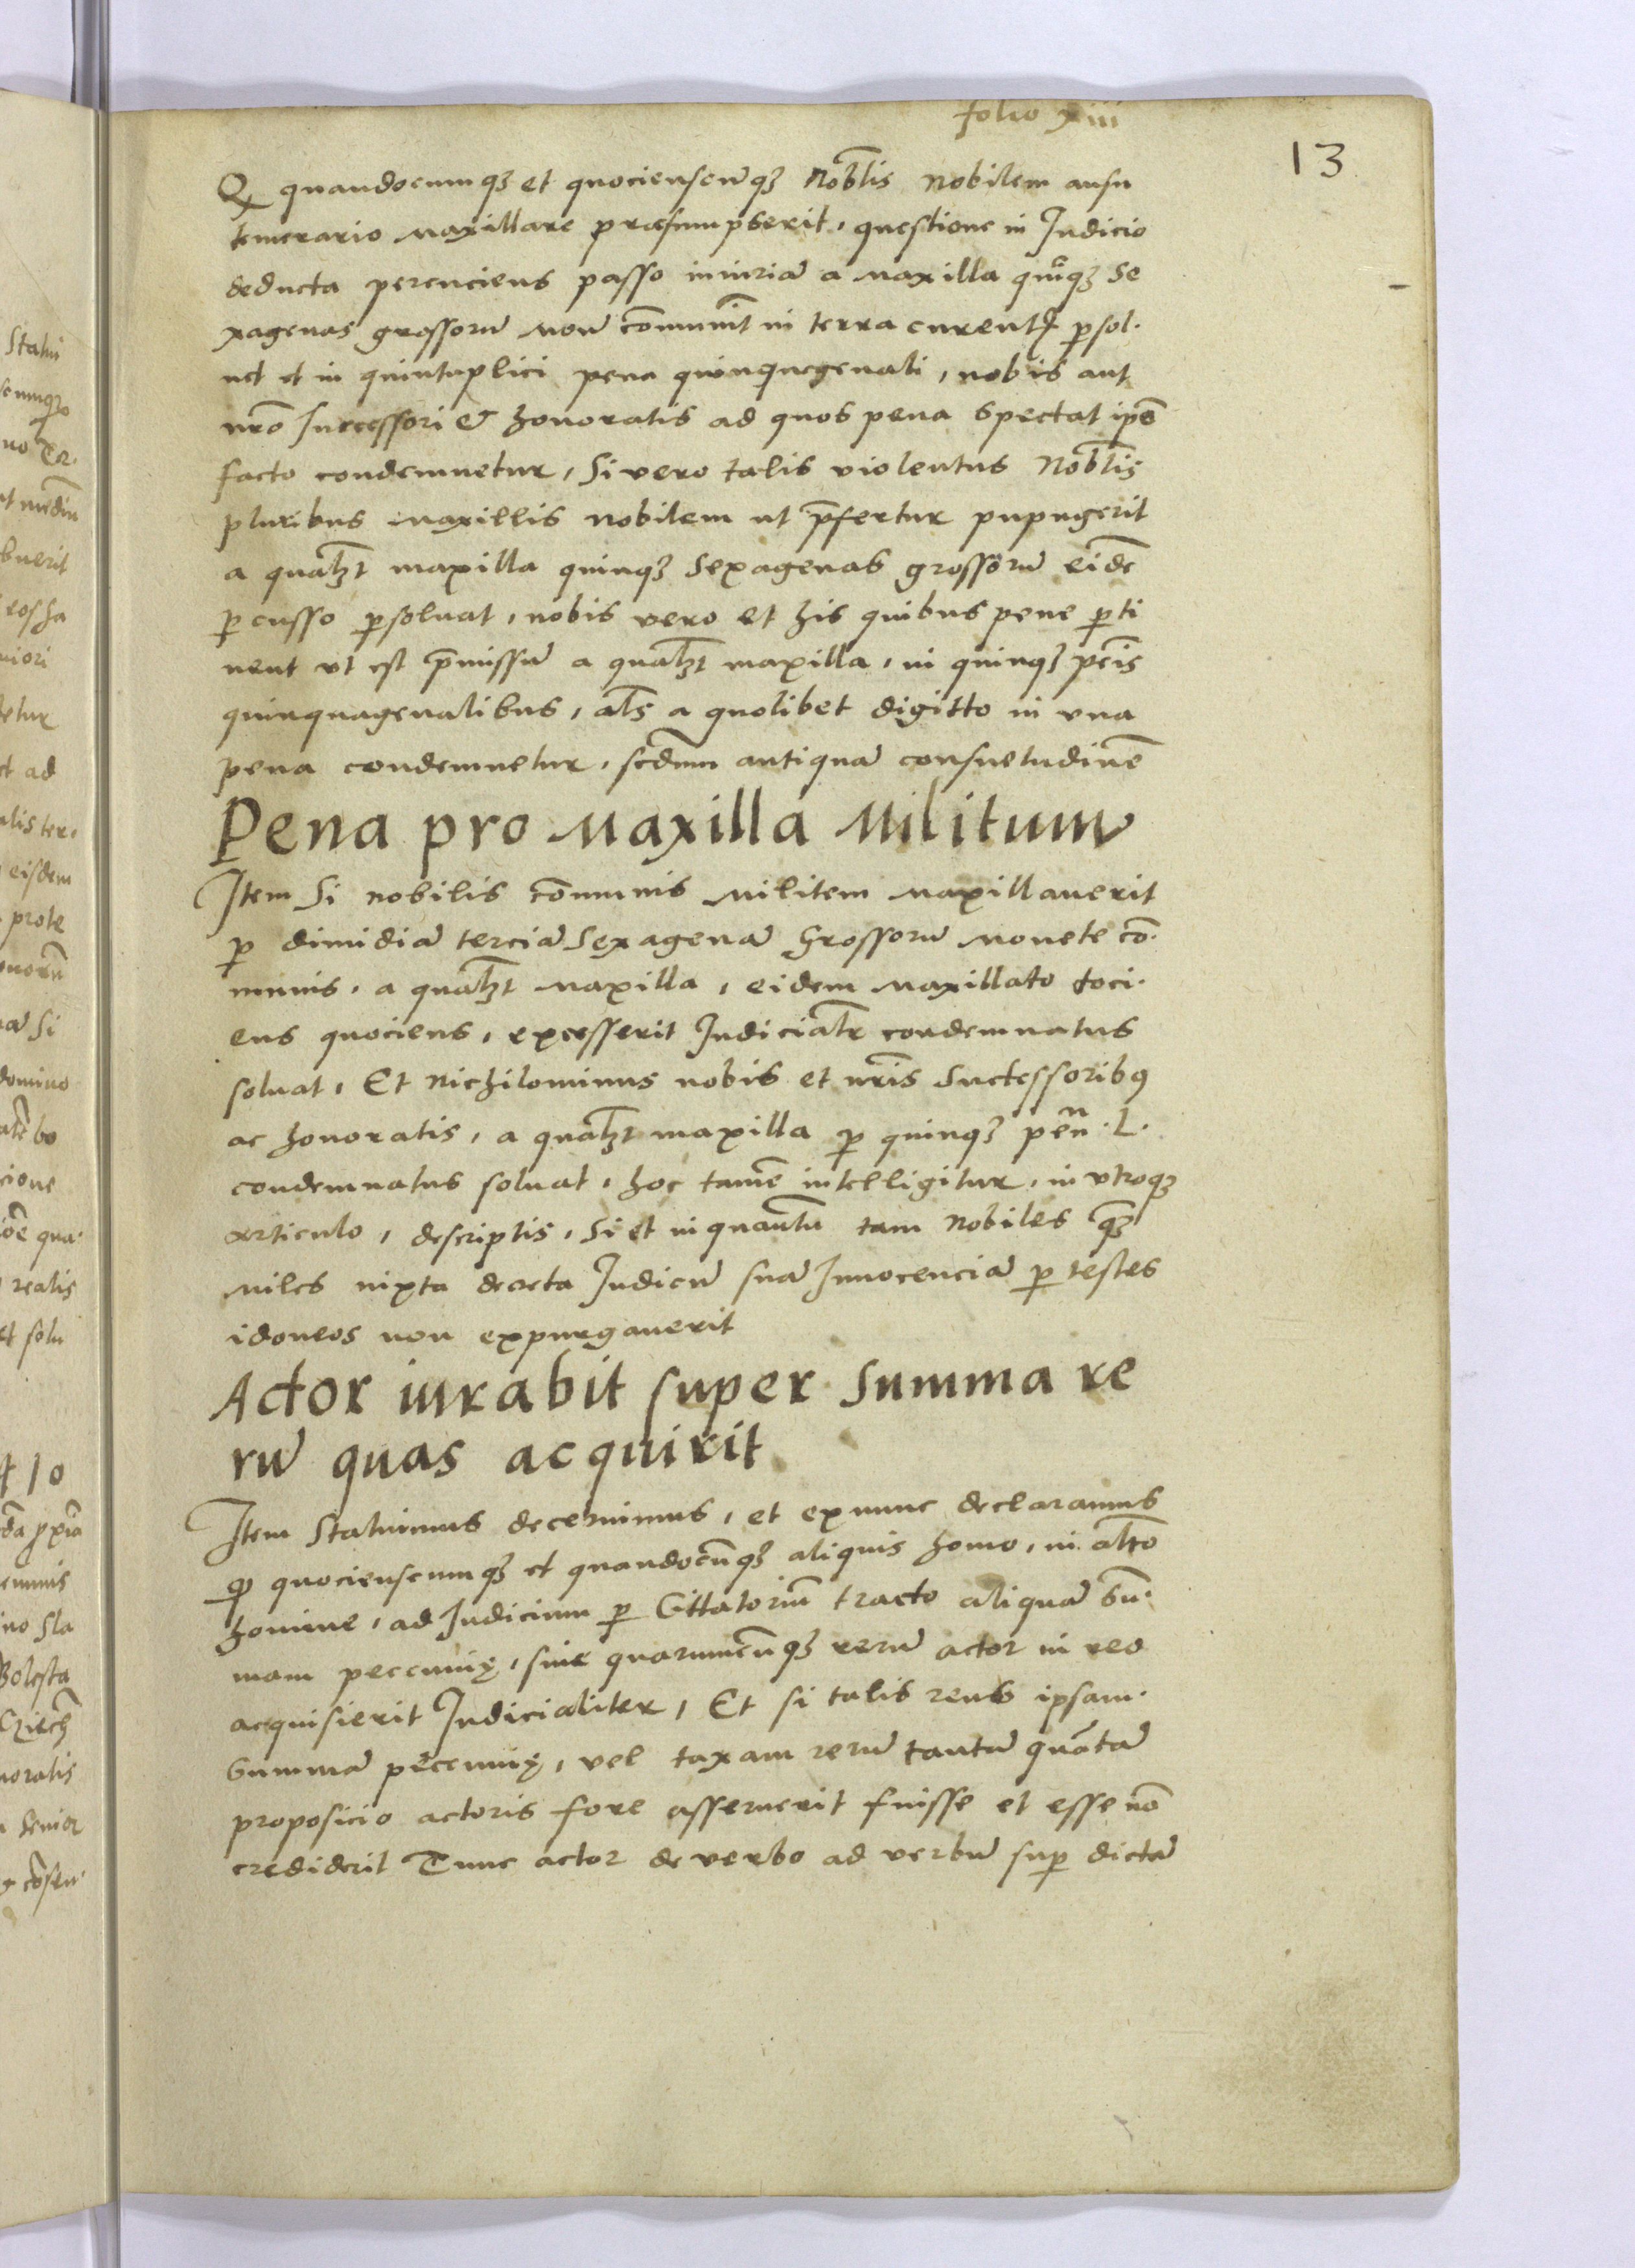 folio xiii
13
Qꝫ quandocumqꝫ et quocienscūqꝫ Nobl̄is nobilem ausu
temerario maxillare præsumpserit, questione in Judicio
deducta percuciens passo iniuriā a maxilla qui̅qꝫ Se
xagenas grossorū mon̄ co̅mun̄it in terra curent̄ ꝑsol.
uet et in quintuplici pena quinquagenali, nobis aut
nr̄o successori & honoratis ad quos pena spectat ip̄o
facto condemnetur, Si vero talis violentus Nobl̄is
pluribus maxillis nobilem ut p̄fertur pupugerit
a qual̄ꝫt maxilla quinqꝫ Sexagenas grossorū eidē
ꝑcusso ꝑsoluat, nobis vero et his quibus pene ꝑti
nent ut est p̄missū a qual̄ꝫt maxilla, in quinqꝫ pēis
quinquagenalibus, al̄s a quolibet digitto in vna
pena condemnetur, scd̄um antiquā consuetudinē
Pena pro Maxilla Militum
Item Si nobilis co̅munis militem maxillauerit
ꝑ dimidiā terciā Sexagenā Grossorū monete cō.
munis, a qual̄ꝫt maxilla, eidem maxillato toci.
ens quociens, excesserit Judicial̄r condemnatus
soluat, Et nichilominus nobis et nr̄is Successoribꝰ
ac honoratis, a qual̄ꝫt maxilla ꝑ quinqꝫ pen̄ .L.
condemnatus soluat, hoc tamē intelligitur, in vtroqꝫ
articulo, descriptis, Si et inquantū tam Nobiles qꝫ
miles iuxta decreta Judicū suā Innocenciā ꝑ testes
idoneos non expurgauerit
Actor iurabit super summa re
rū quas acquirit
Item Statuimus decernimus, et exnunc declaramus
ꝙ quocienscumqꝫ et quandocūqꝫ aliquis homo, in alt̄o
homine, ad Judicium ꝑ Cittatoriū tracto aliquā Sū.
mam peccunię, siue quarumcūqꝫ rerū actor in reo
acquisierit Judicialiter, Et si talis reus ipsam.
Summā peccunię, vel taxam rerū tantū quātā
proposicio actoris fore asseruerit fuisse et esse nō
crediderit Tunc actor de verbo ad verbū suꝑ dictā